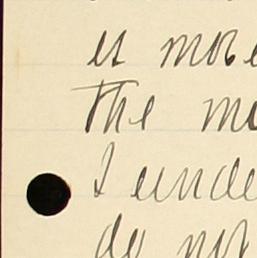 is more
The m
I unde
do not